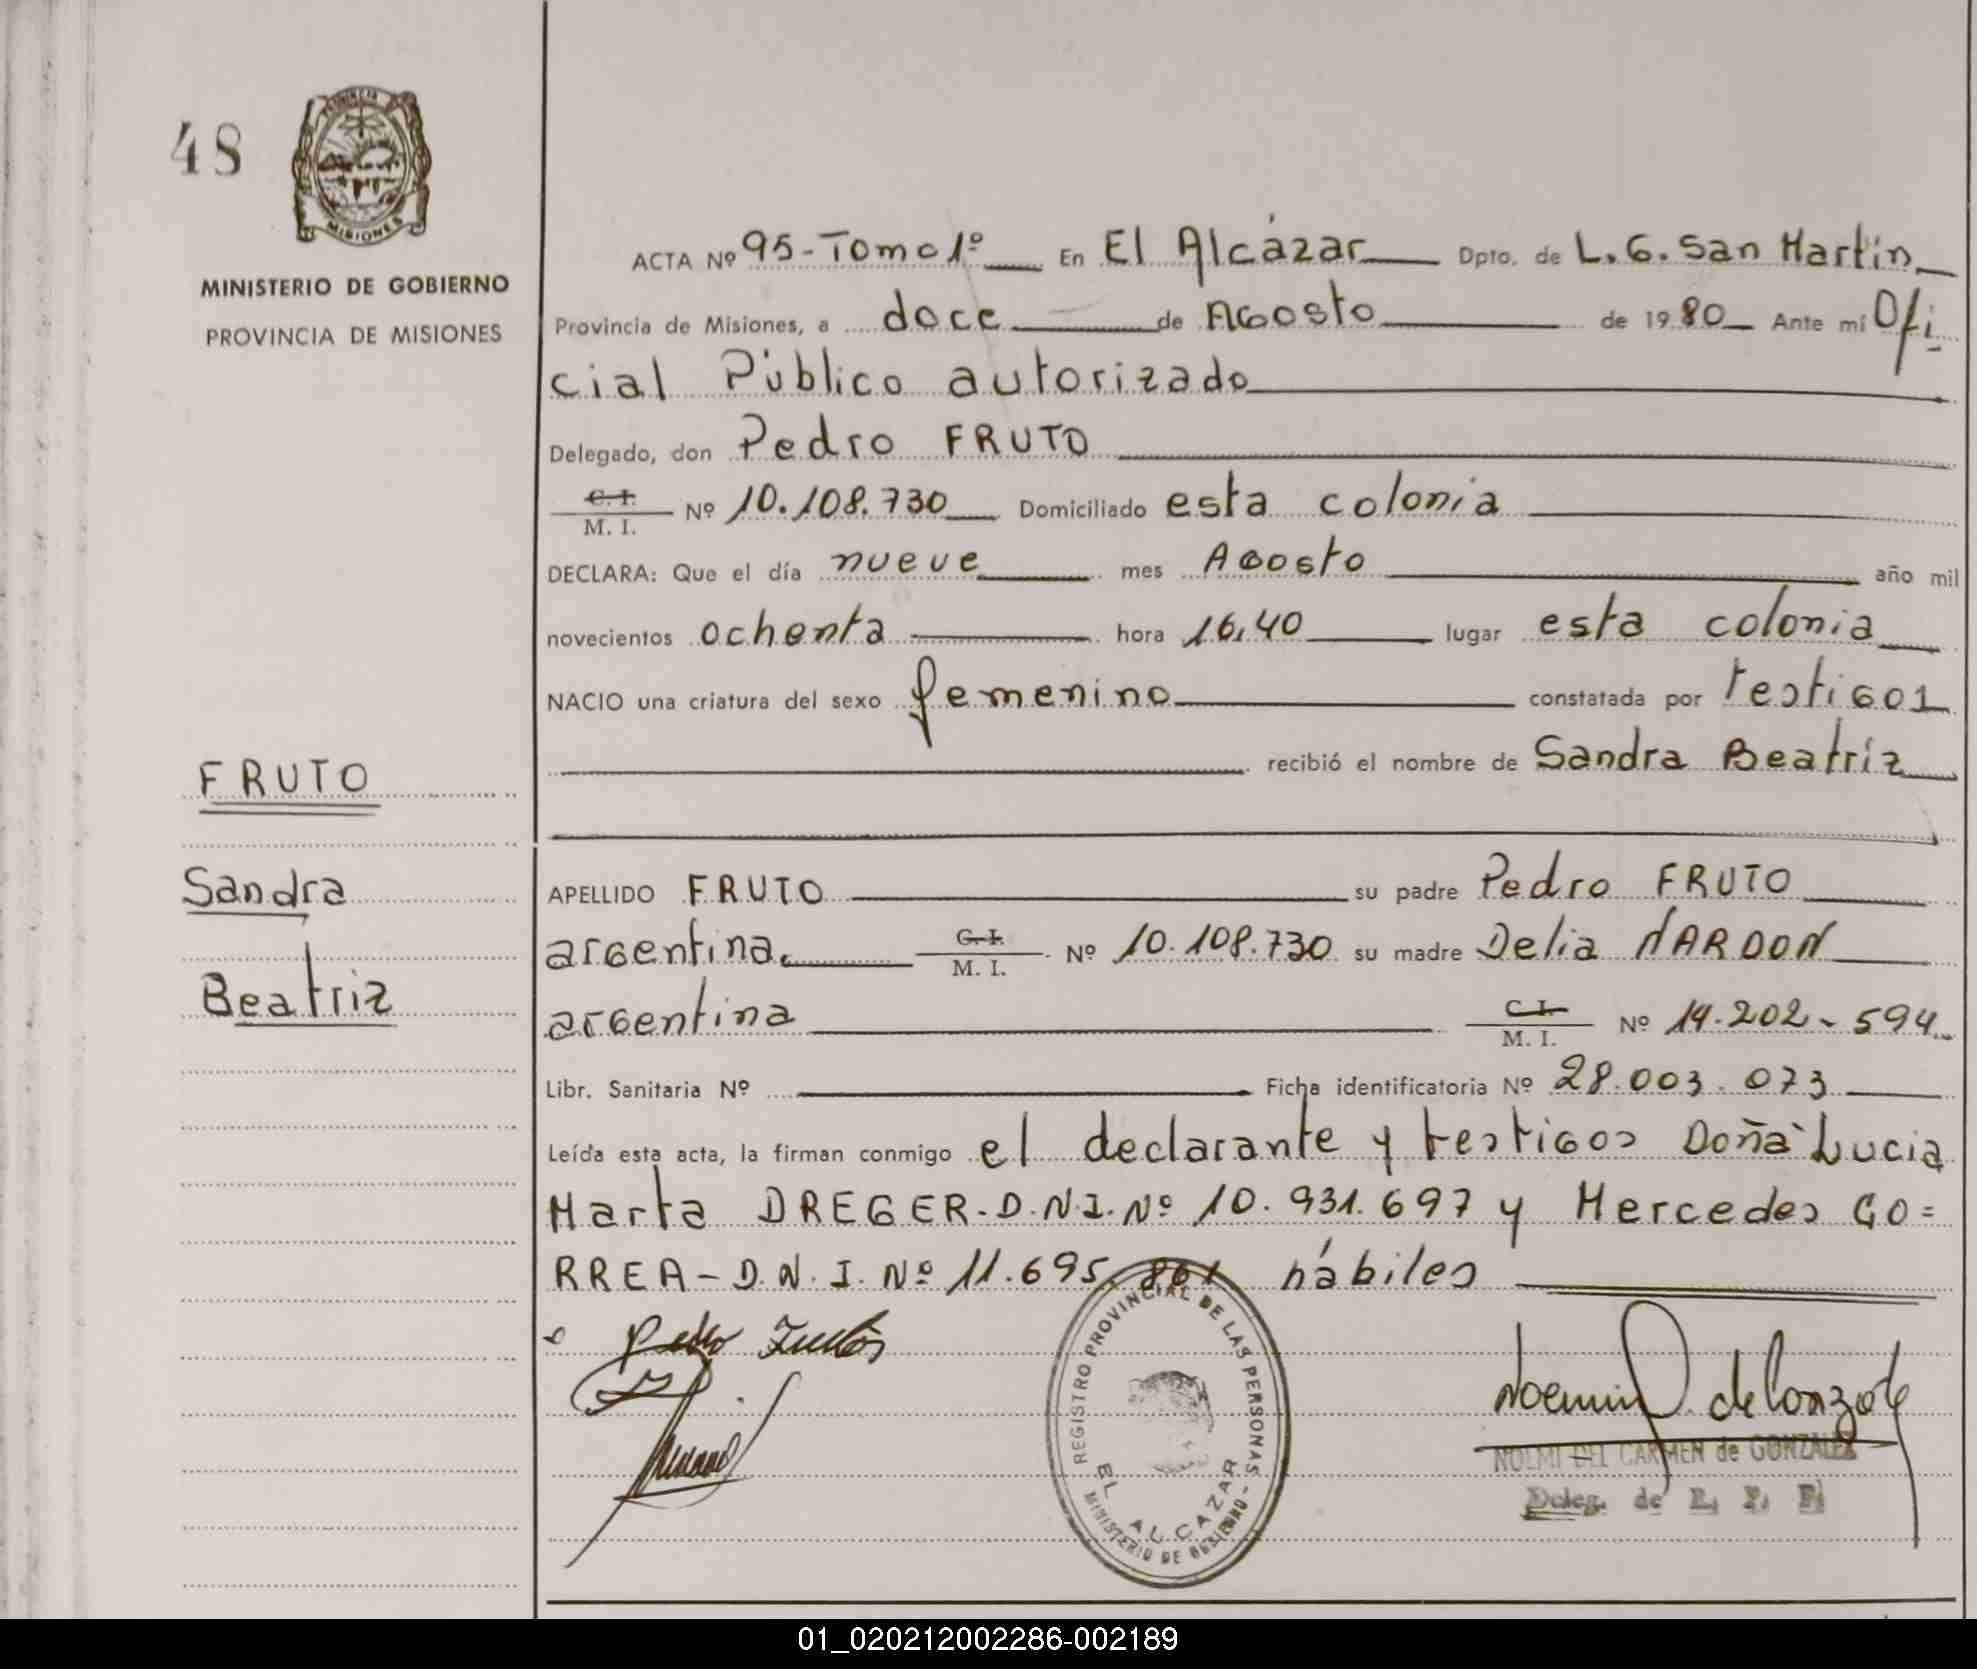 48
PROVINCIA
MISIONES
MINISTERIO DE GOBIERNO
PROVINCIA DE MISIONES
ACTA Nº 95-Tomo 1º En El Alcázar Dpto. de L.G. San Martín
Provincia de Misiones, a doce de Agosto de 1980 Ante mí Ofi
cial Público autorizado
Delegado, don Pedro FRUTO
C. I. / M. I. Nº 10.108.730 Domiciliado esta colonia
DECLARA: Que el día nueve mes Agosto año mil
novecientos ochenta hora 16,40 lugar esta colonia
NACIO una criatura del sexo femenino constatada por testigos
recibió el nombre de Sandra Beatríz
FRUTO
Sandra
Beatriz
APELLIDO FRUTO su padre Pedro FRUTO
argentina. C. I. / M. I. Nº 10.108.730 su madre Delia NARDON
argentina C. I. / M. I. Nº 14.202-594
Libr. Sanitaria Nº Ficha identificatoria Nº 28.003.073
Leída esta acta, la firman conmigo el declarante y testigos Doña Lucia
Marta DREGER-D.N.I. Nº 10.931.697 y Mercedes CO=
RREA-D.N.I. Nº 11.695.861 hábiles
Pedro
REGISTRO PROVINCIAL DE LAS PERSONAS
EL ALCAZAR
MINISTERIO DE GOBIERNO
de Gonzalez
NOEMI DEL CARMEN de GONZALEZ
Deleg. de R. P. P.
01_020212002286-002189